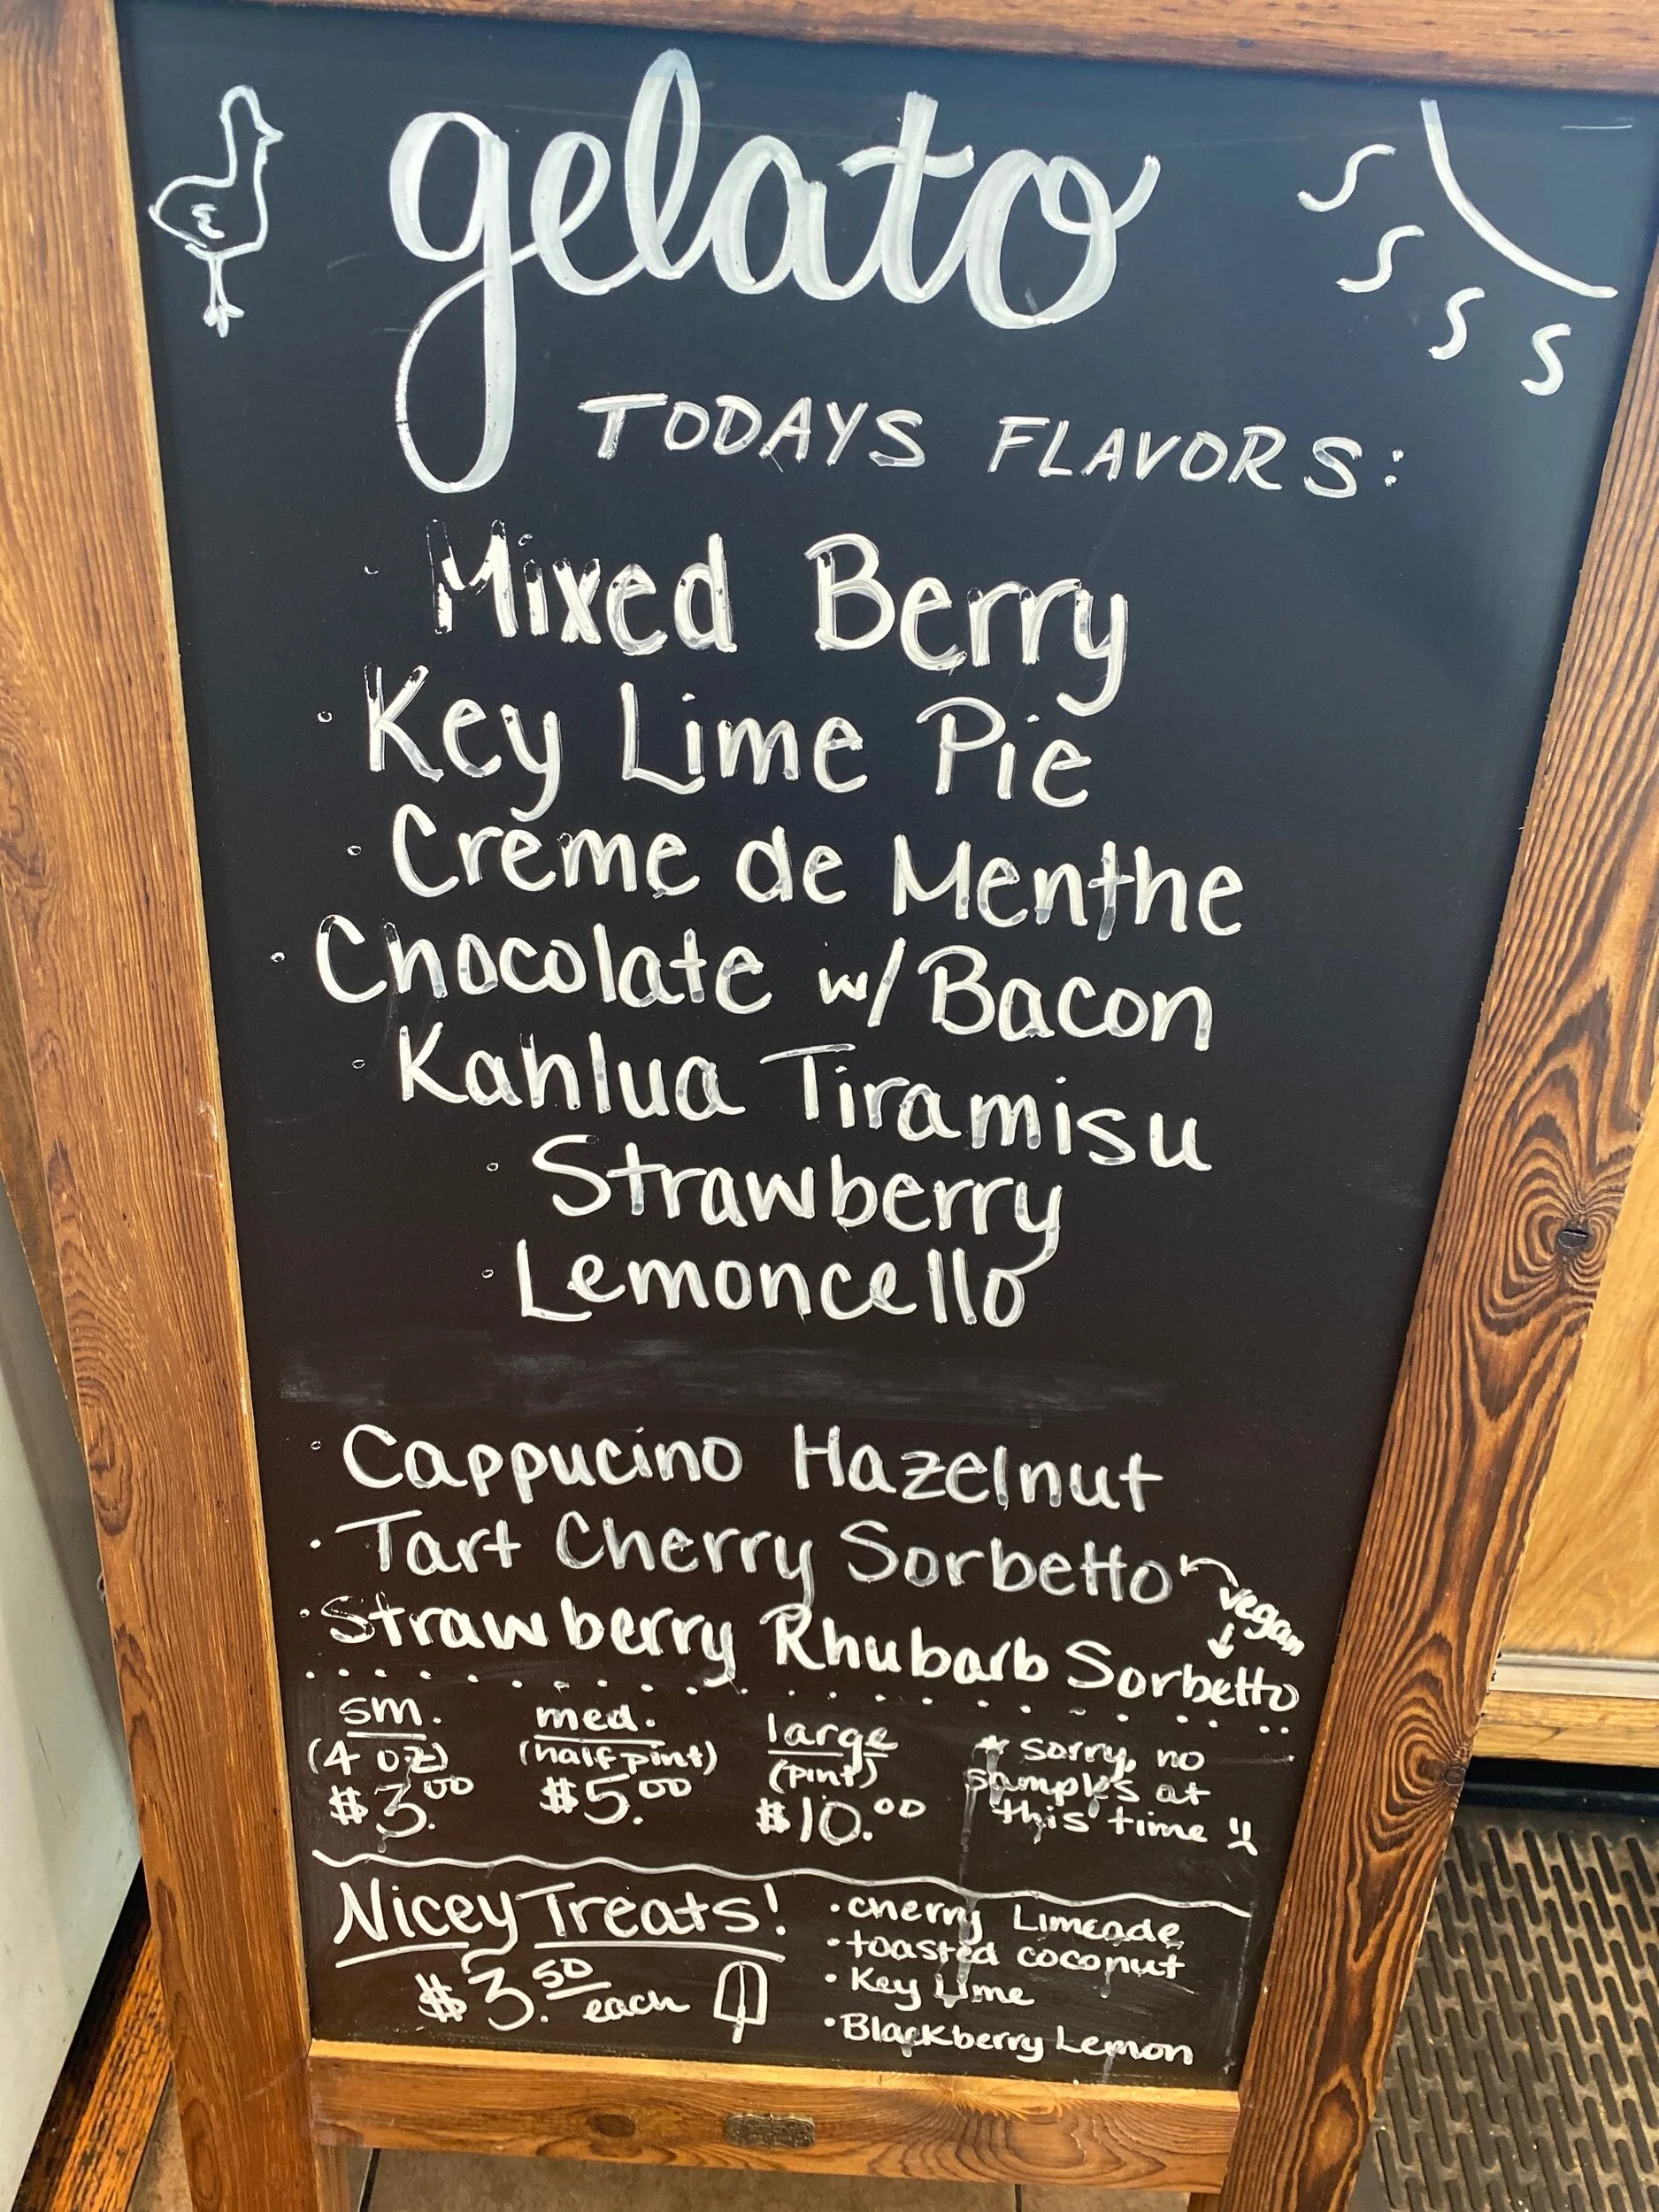 gelato
TODAYS FLAVORS:
· Mixed Berry
· Key Lime Pie
· Crème de Menthe
· Chocolate w/ Bacon
· Kahlua Tiramisu
· Strawberry
· Lemoncello
· Cappucino Hazelnut
· Tart Cherry Sorbetto
vegan
· Strawberry Rhubarb Sorbetto
sm.
(4 oz)
$3.00
med.
(half pint)
$5.00
large
(pint)
$10.00
* sorry, no
samples at
this time
Nicey Treats!
$3.50 each
· cherry Limeade
· toasted coconut
· Key Lime
· Blackberry Lemon